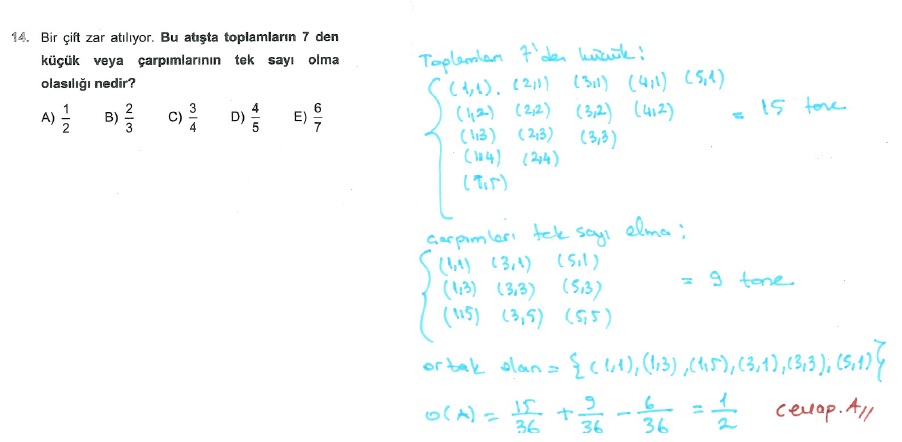 14. Bir çift zar atılıyor. Bu atışta toplamların 7 den
küçük veya çarpımlarının tek sayı olma
olasılığı nedir?
A) 1/2 B) 2/3 C) 3/4 D) 4/5 E) 6/7
Toplamları 7'den küçük:
(1,1). (2,1) (3,1) (4,1) (5,1)
(1,2) (2,2) (3,2) (4,2) = 15 tane
(1,3) (2,3) (3,3)
(1,4) (2,4)
(1,5)
Çarpımları tek sayı olma:
(1,1) (3,1) (5,1)
(1,3) (3,3) (5,3) = 9 tane
(1,5) (3,5) (5,5)
ortak olan = {(1,1),(1,3),(1,5),(3,1),(3,3),(5,1)}
O(A) = 15/36 + 9/36 - 6/36 = 1/2 Cevap.A//